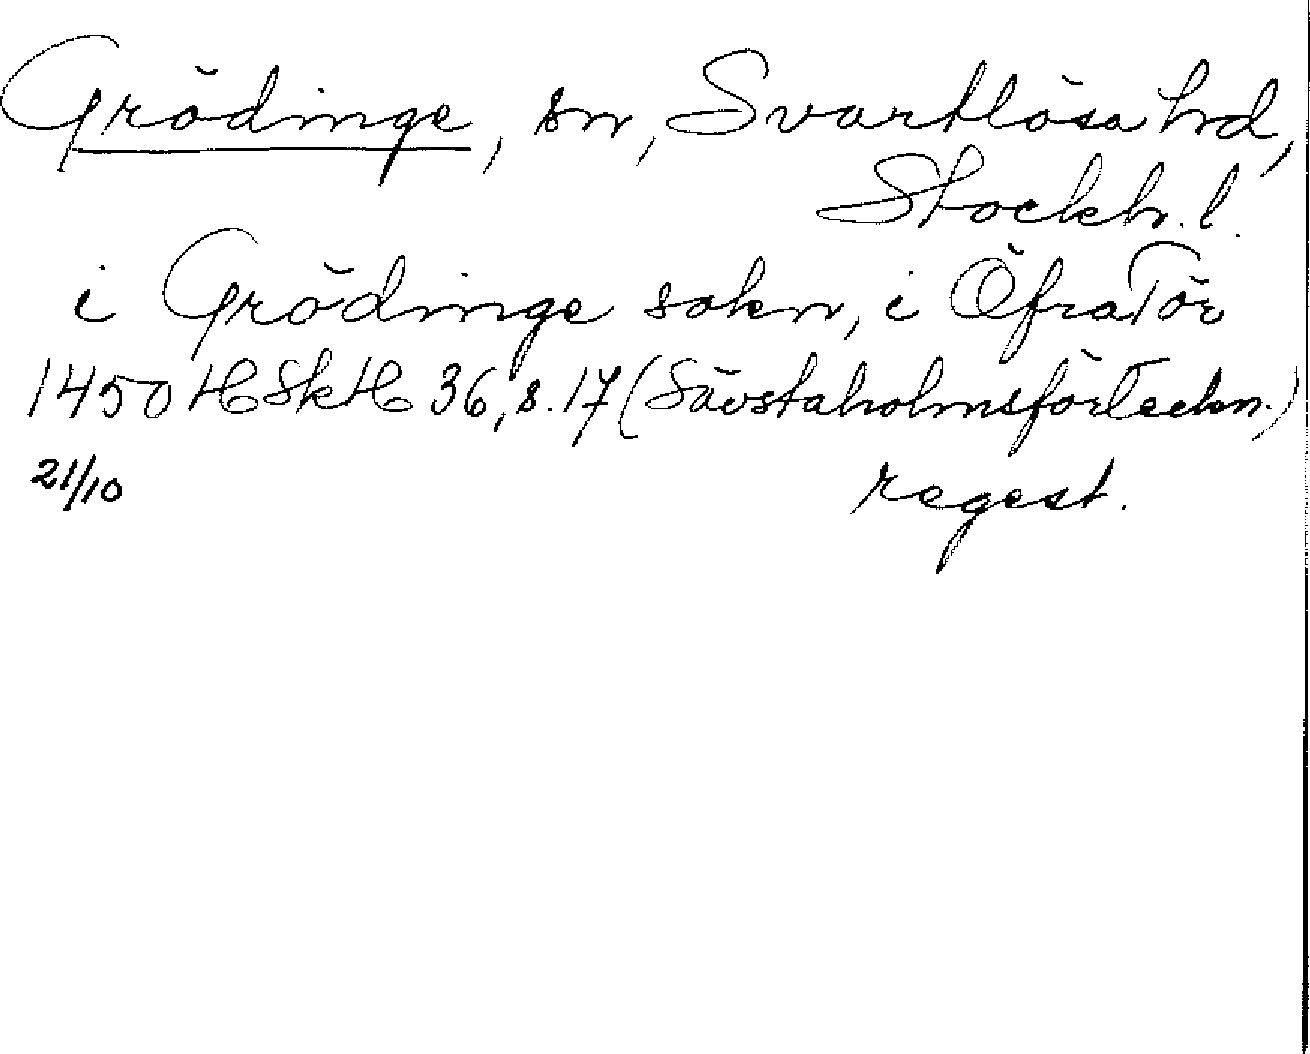 Grödinge, sn, Svartlösa hd,
Stockh. l.
i Grödinge sokn, i Öfra Tör
1450 HSkH 36, s. 17 (Sävstaholmsförteckn.)
21/10 regest.